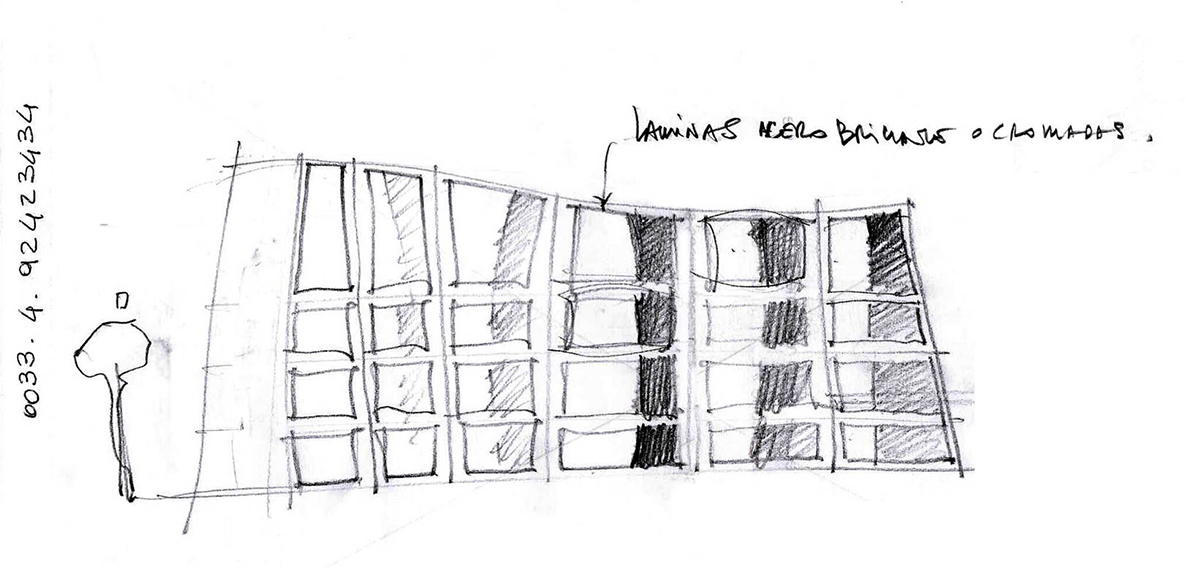 LAMINAS ACERO BRILLANTE O CROMADAS.
0033.4.92423434